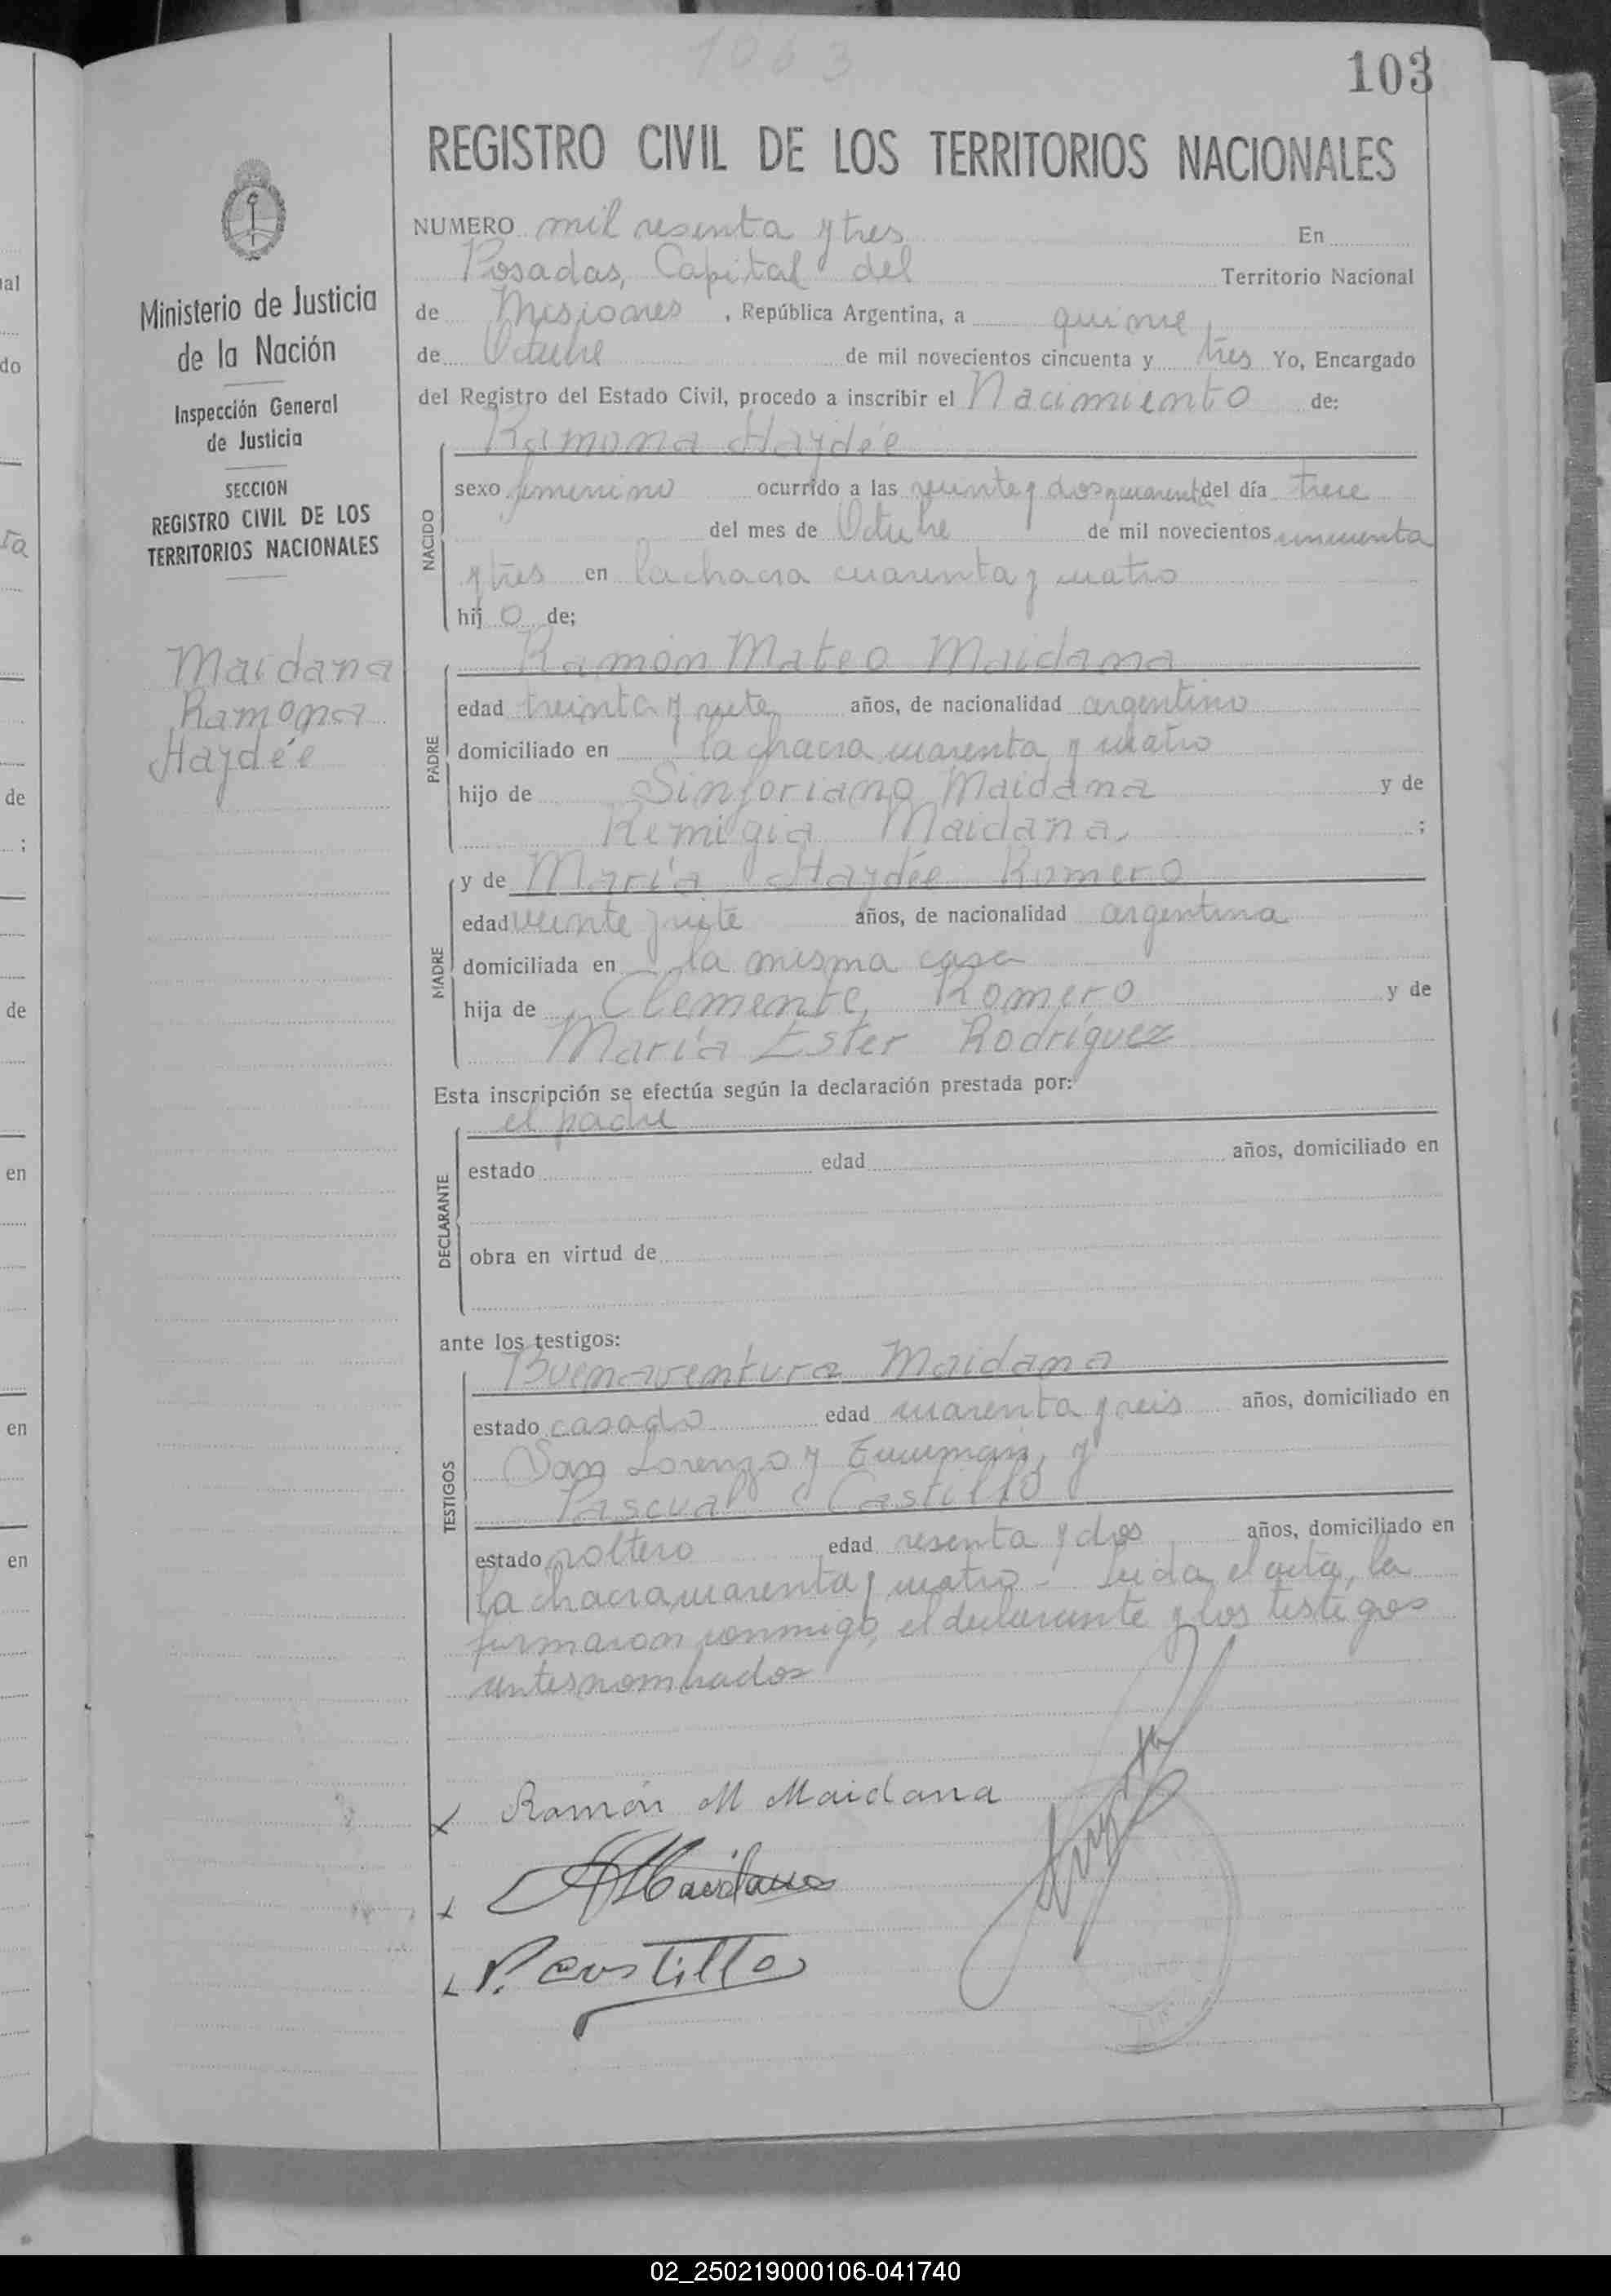 1063
103
REGISTRO CIVIL DE LOS TERRITORIOS NACIONALES
NUMERO mil sesenta y tres En
Posadas, Capital del Territorio Nacional
de Misiones, República Argentina, a quince
de Octubre de mil novecientos cincuenta y tres Yo, Encargado
del Registro del Estado Civil, procedo a inscribir el Nacimiento de:
Ramona Haydée
NACIDO
sexo femenino ocurrido a las veinte y dos y cuarenta del día trece
del mes de Octubre de mil novecientos cincuenta
y tres en la chacra cuarenta y cuatro
hij o de;
Ramón Mateo Maidana
PADRE
edad treinta y siete años, de nacionalidad argentino
domiciliado en la chacra cuarenta y cuatro
hijo de Sinforiano Maidana y de
Remigia Maidana ;
y de María Haydée Romero
MADRE
edad veinte y siete años, de nacionalidad argentina
domiciliada en la misma casa
hija de Clemente Romero y de
María Ester Rodríguez
Esta inscripción se efectúa según la declaración prestada por:
el padre
DECLARANTE
estado edad años, domiciliado en
obra en virtud de
ante los testigos:
Buenaventura Maidana
TESTIGOS
estado casado edad cuarenta y seis años, domiciliado en
San Lorenzo y Tucumán, y
Pascual Castillo
estado soltero edad sesenta y dos años, domiciliado en
la chacra cuarenta y cuatro - Leida el acta, la
firmaron conmigo, el declarante y los testigos
antes nombrados
Ramón M Maidana
Maidana
P. Castillo
Ministerio de Justicia
de la Nación
Inspección General
de Justicia
SECCION
REGISTRO CIVIL DE LOS
TERRITORIOS NACIONALES
Maidana
Ramona
Haydée
al
do
de
;
de
en
en
en
02_250219000106-041740